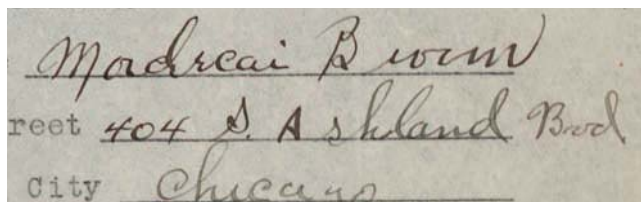 Mordecai Brown
reet 404 S. Ashland Bvd
City Chicago